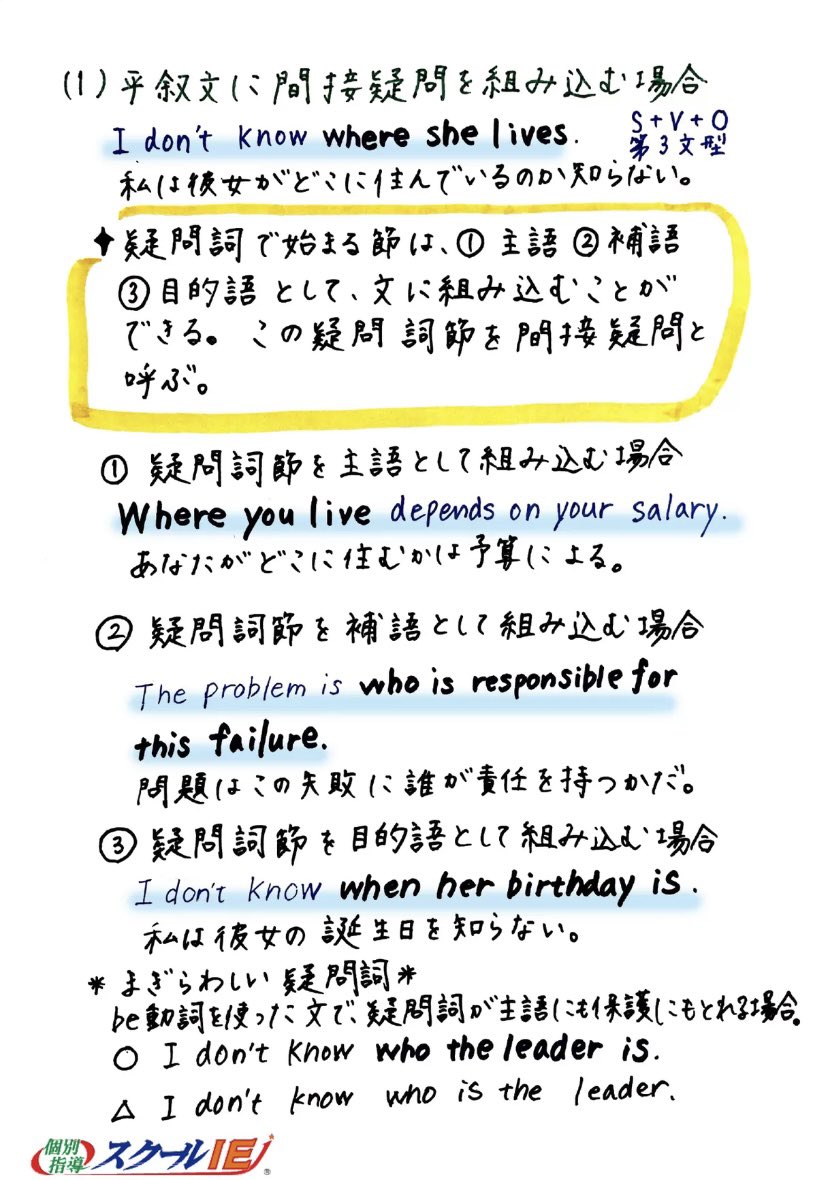 (1) 平叙文に間接疑問を組み込む場合
I don't know where she lives.
S+V+O
第3文型
私は彼女がどこに住んでいるのか知らない。
✦疑問詞で始まる節は、① 主語 ② 補語
③ 目的語 として、文に組み込むことが
できる。この疑問詞節を間接疑問と
呼ぶ。
① 疑問詞節を主語として組み込む場合
Where you live depends on your salary.
あなたがどこに住むかは予算による。
② 疑問詞節を補語として組み込む場合
The problem is who is responsible for
this failure.
問題はこの失敗に誰が責任を持つかだ。
③ 疑問詞節を目的語として組み込む場合
I don't know when her birthday is.
私は彼女の誕生日を知らない。
*まぎらわしい疑問詞*
be動詞を使った文で、疑問詞が主語にも保護にもとれる場合。
○ I don't know who the leader is.
△ I don't know who is the leader.
個別
指導
スクールIE
®